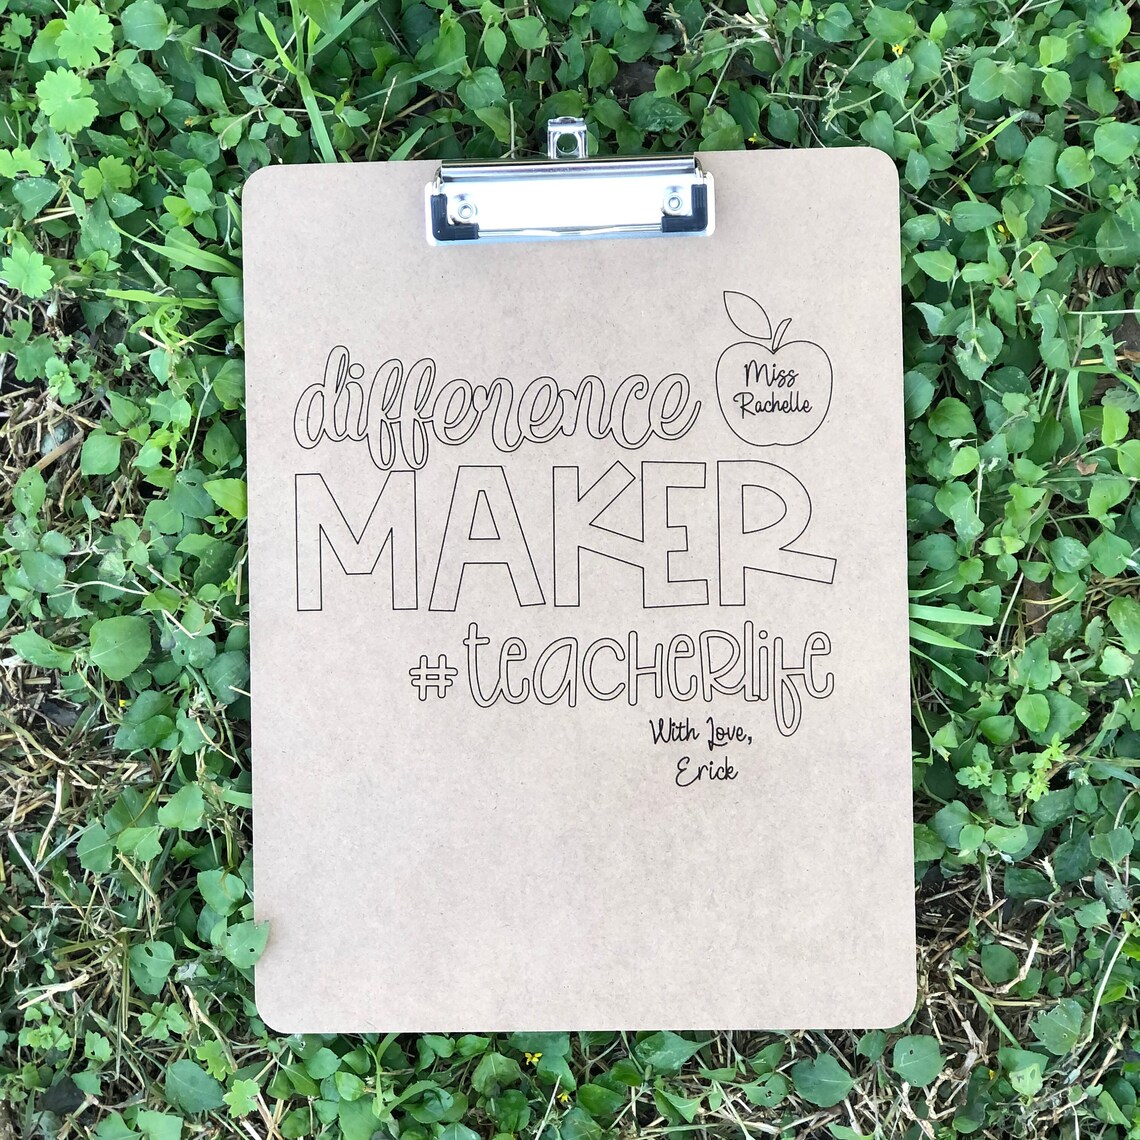 Miss
Rachelle
difference
MAKER
#teacHeRlife
With Love,
Erick